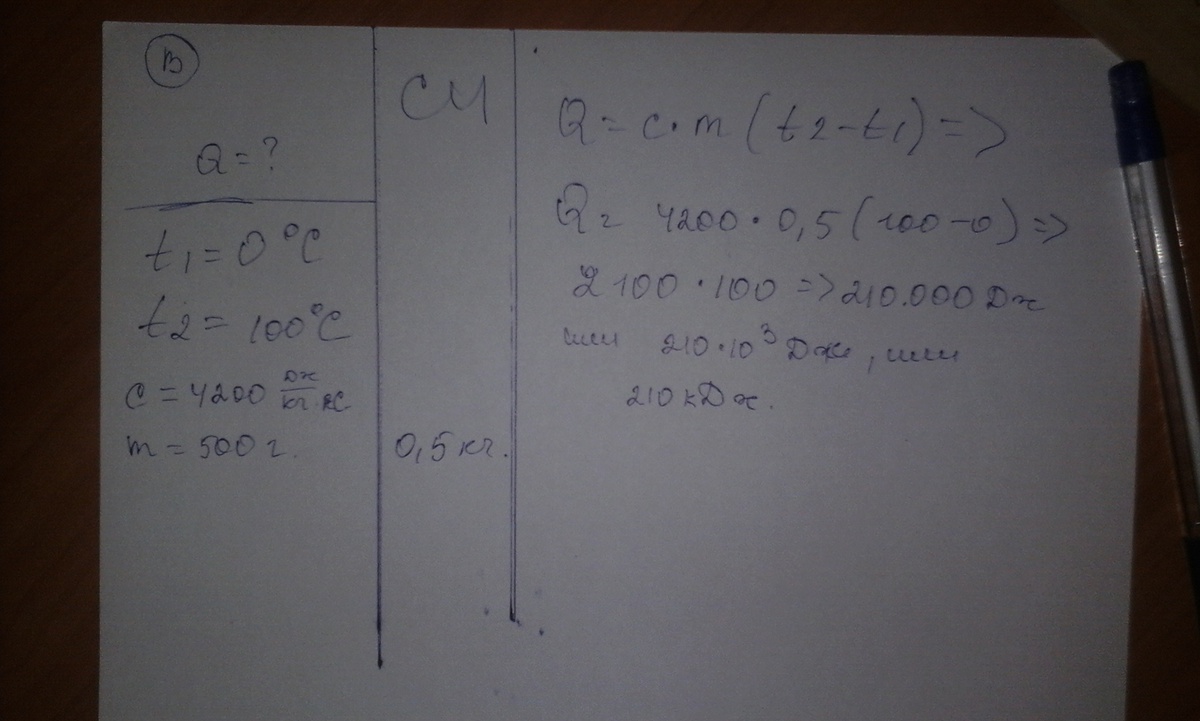 В
Q = ?
t1 = 0 °C
t2 = 100°C
c = 4200 Дж/кг·°C
m = 500 г.
СИ
0,5 кг.
Q = c·m (t2 - t1) =>
Q = 4200 · 0,5 (100 - 0) =>
2100 · 100 => 210.000 Дж
или 210·10³ Дж, или
210 кДж.